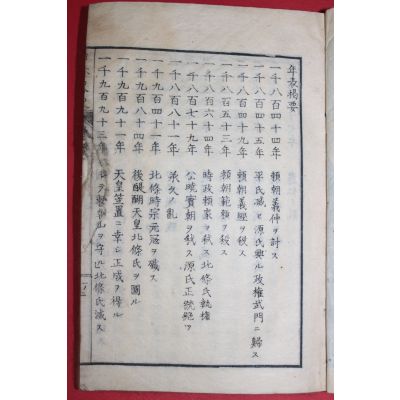 年表揭要
一千八百四十四年 賴朝義仲ヲ討ス
一千八百四十五年 平氏滅ヒ源氏興ル政權武門ニ歸ス
一千八百四十九年 賴朝義經ヲ殺ス
一千八百五十三年 賴朝範賴ヲ殺ス
一千八百六十四年 時政賴家ヲ弑ス北條氏執權
一千八百七十九年 公曉實朝ヲ弑ス源氏正統絶ツ
一千八百八十一年 承久ノ亂
一千九百四十一年 北條時宗元冦ヲ殲ス
一千九百八十四年 後醍醐天皇北條氏ヲ圖ル
一千九百九十一年 天皇笠置ニ幸シ正成ヲ得ル
一千九百九十三年 北條氏滅ス